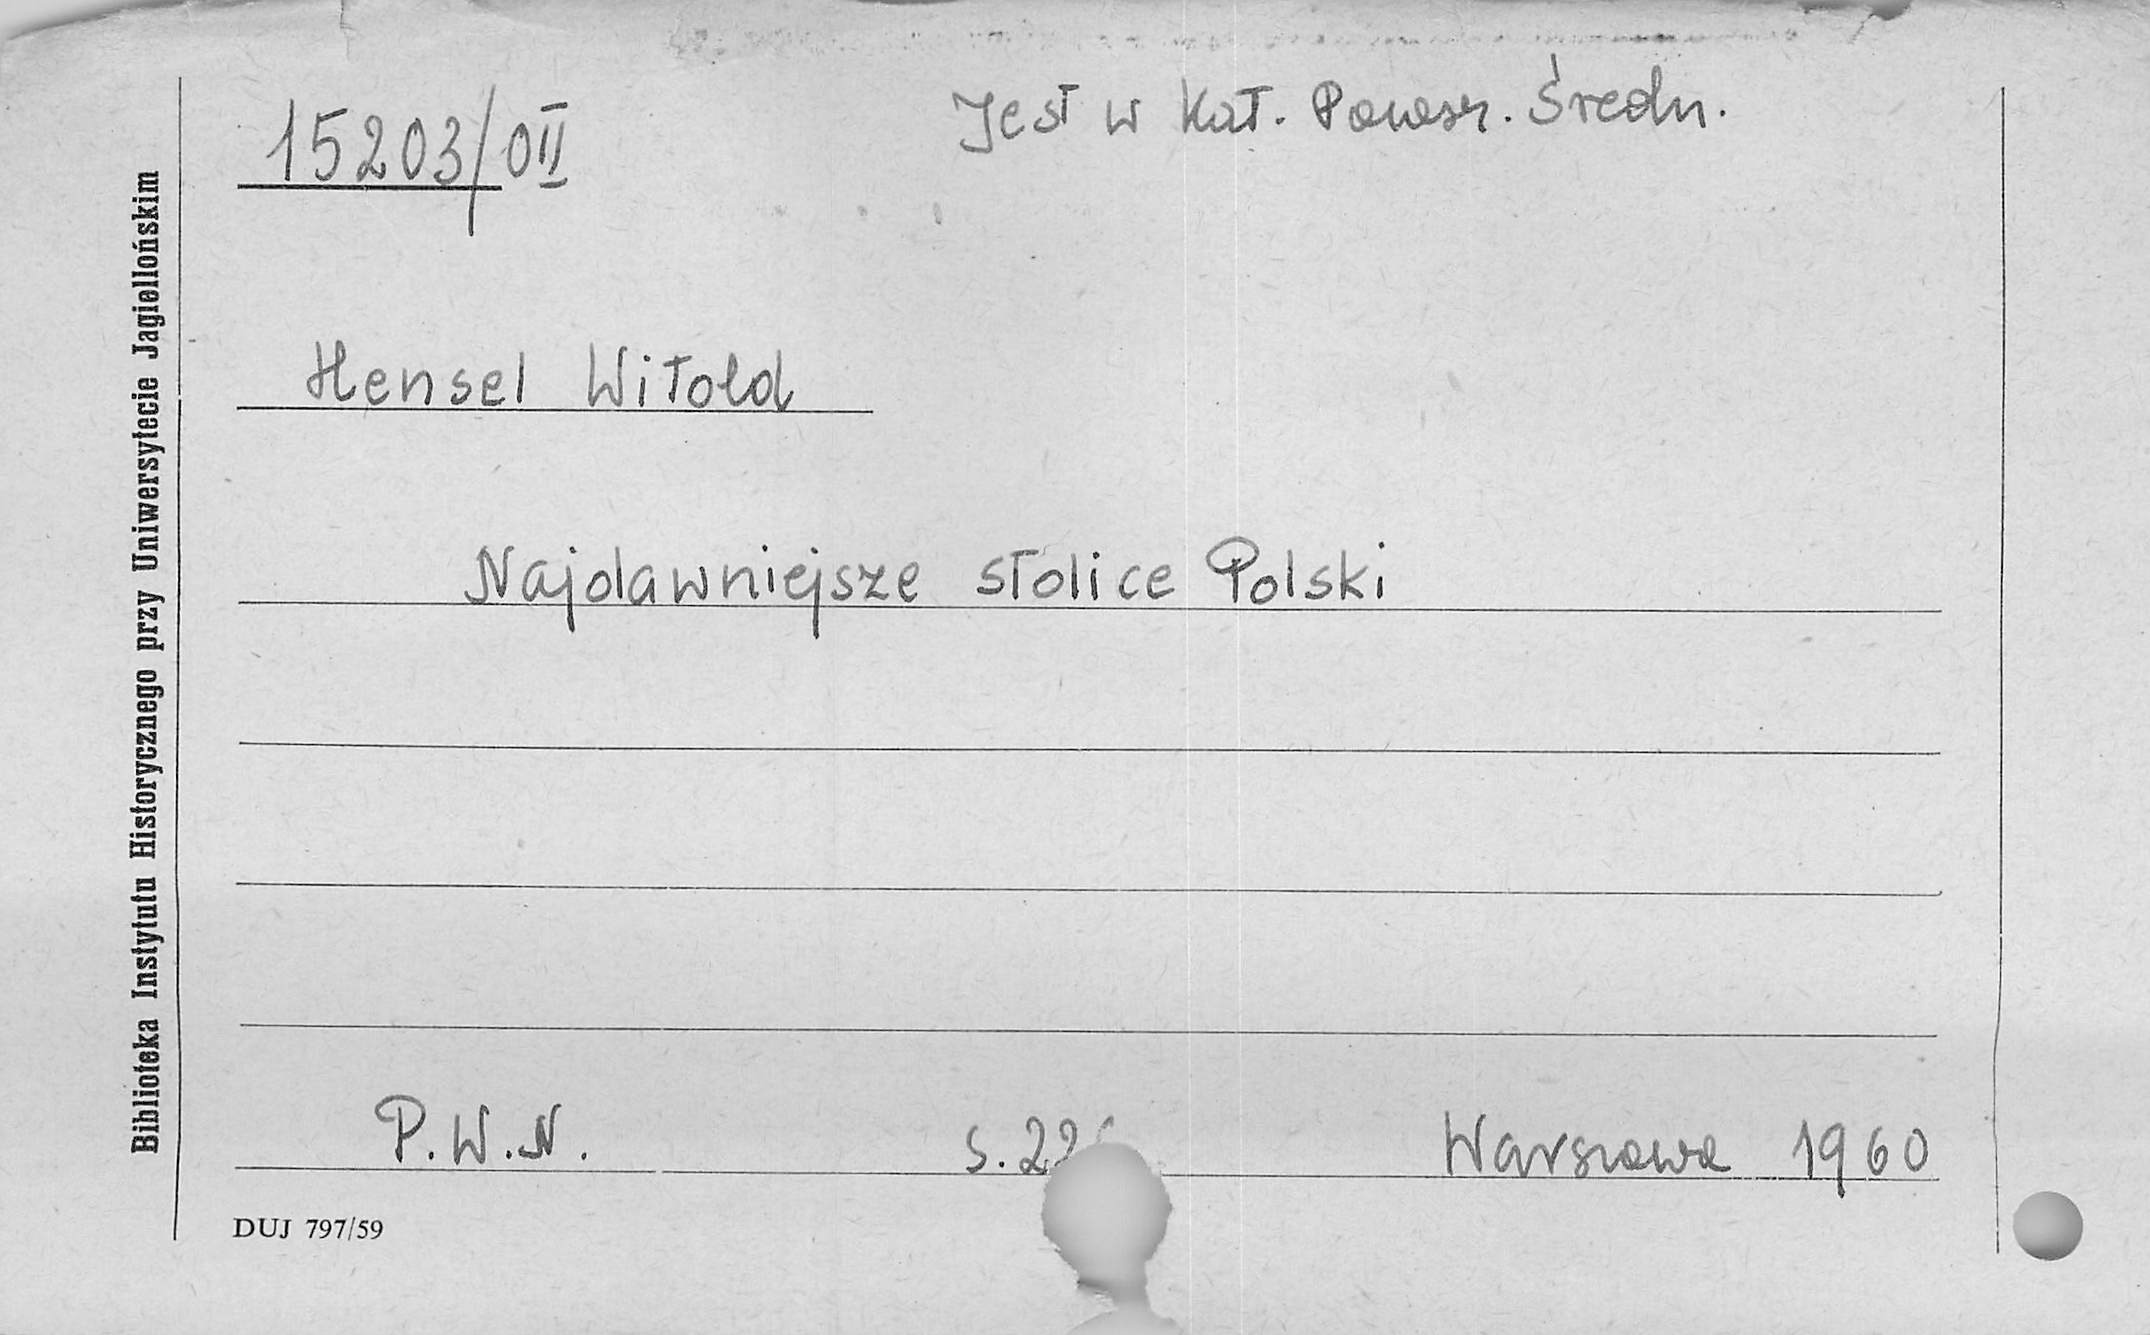 15203/OII
Jest w kat. Powsz. Średn.
Hensel Witold
Najdawniejsze stolice Polski
P.W.N. s. Warszawa 1960
DUJ 797/59
Biblioteka Instytutu Historycznego przy Uniwersytecie Jagiellońskim